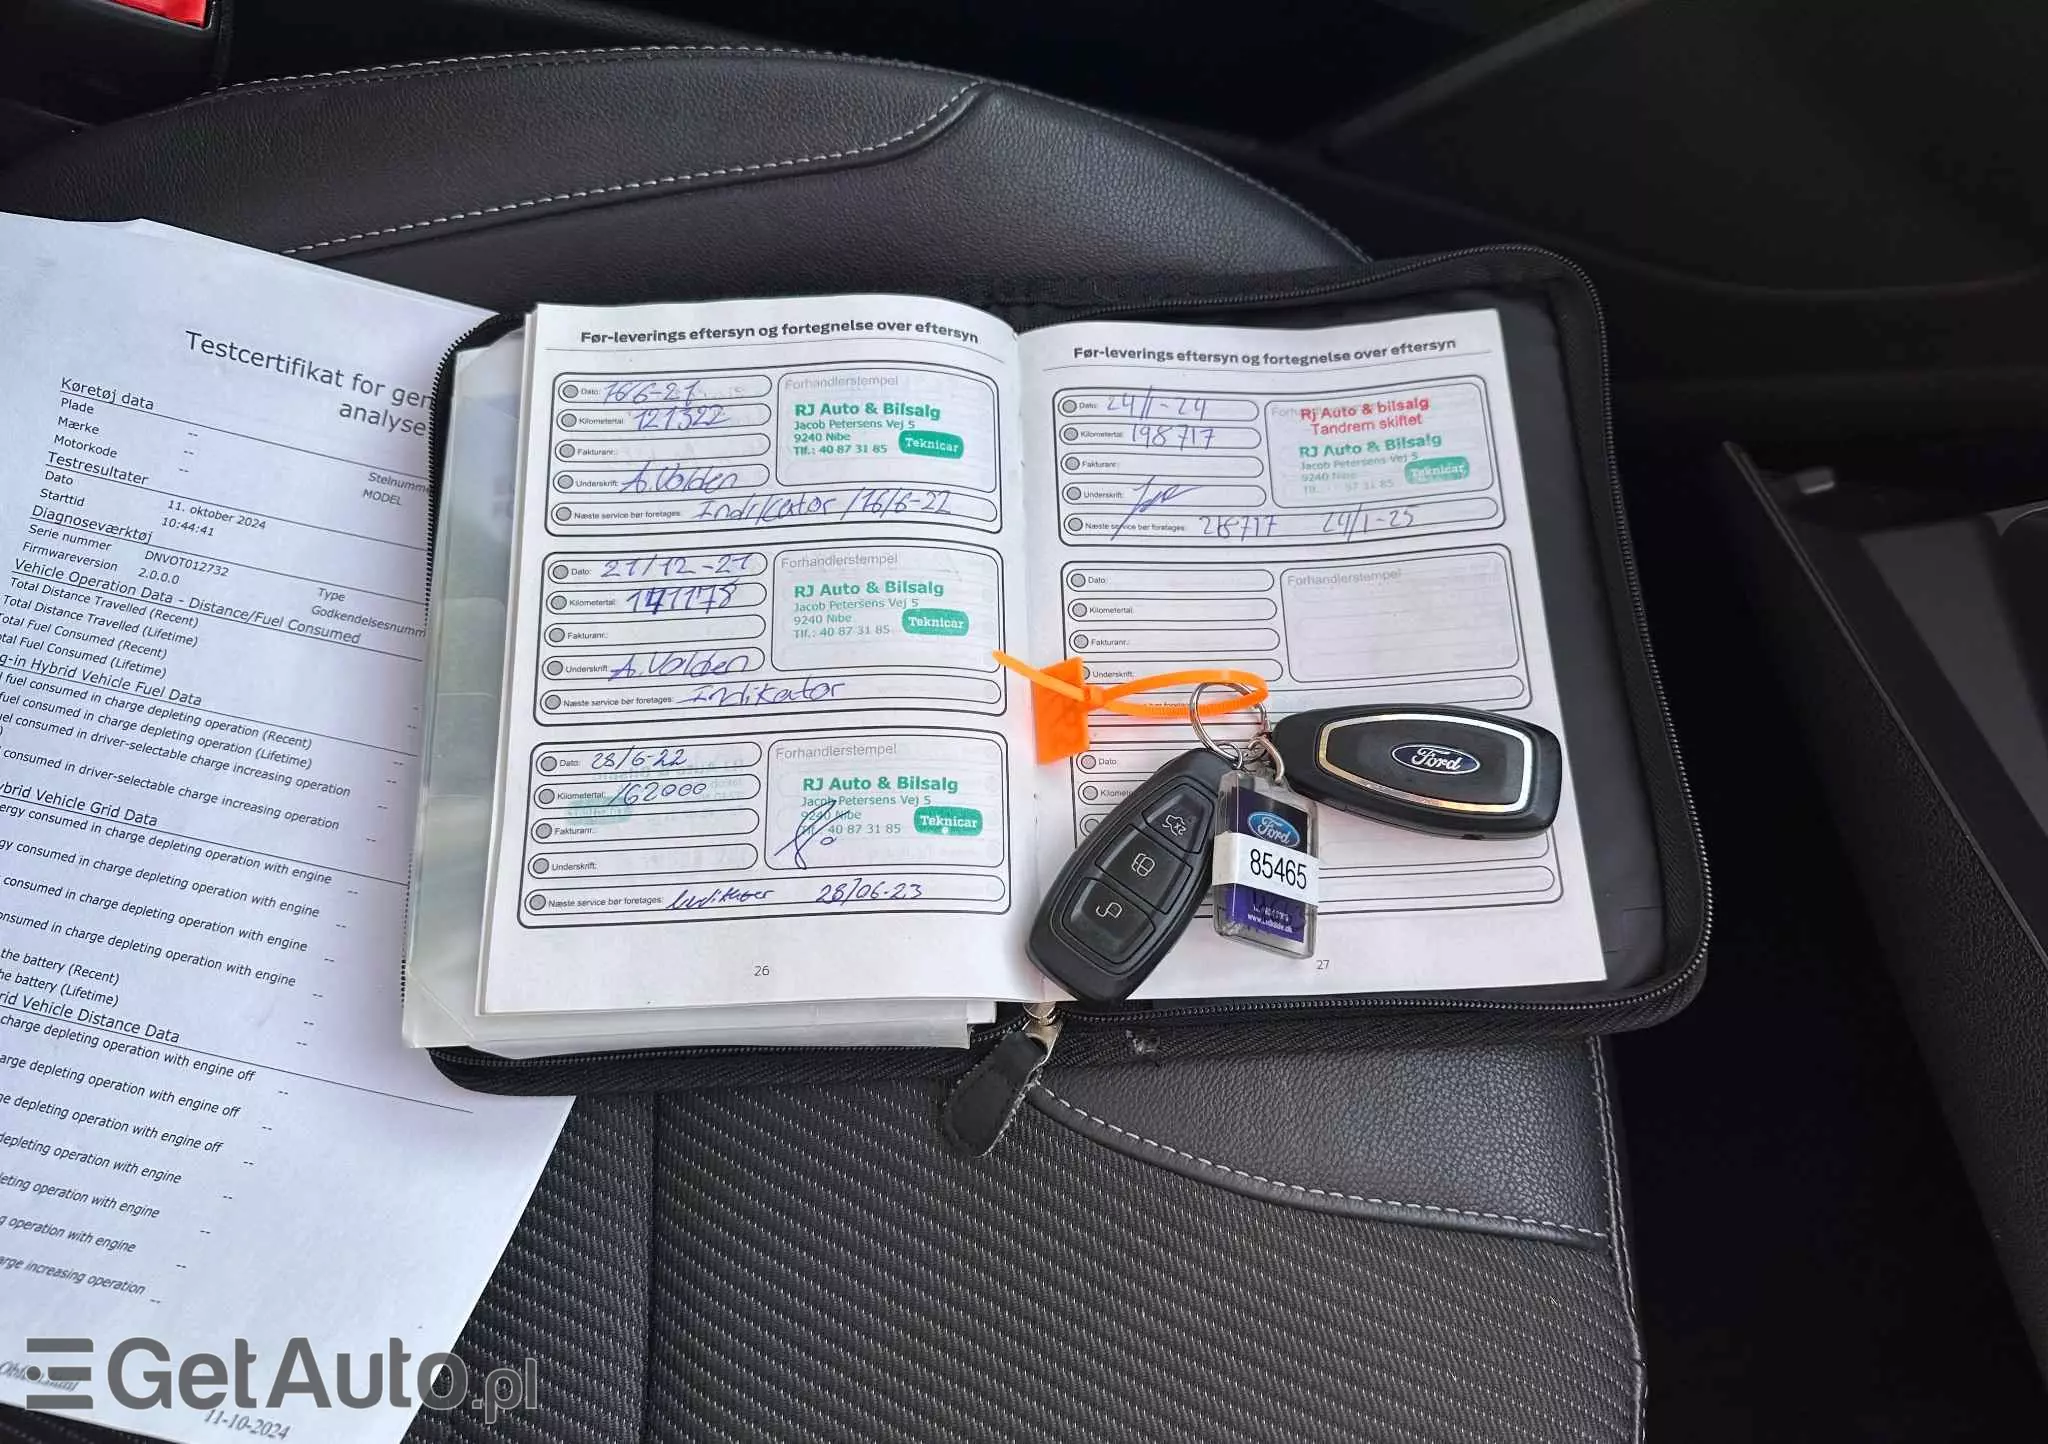 Testcertifikat for gen
analyse
Køretøj data
Plade --
Mærke --
Motorkode --
Stelnumme
MODEL
Testresultater
Dato 11. oktober 2024
Starttid 10:44:41
Diagnoseværktøj
Serie nummer DNVOT012732 Type
Firmwareversion 2.0.0.0 Godkendelsesnumm
Vehicle Operation Data - Distance/Fuel Consumed
Total Distance Travelled (Recent)
Total Distance Travelled (Lifetime)
Total Fuel Consumed (Recent)
otal Fuel Consumed (Lifetime)
g-in Hybrid Vehicle Fuel Data
l fuel consumed in charge depleting operation (Recent)
fuel consumed in charge depleting operation (Lifetime)
uel consumed in driver-selectable charge increasing operation --
consumed in driver-selectable charge increasing operation --
ybrid Vehicle Grid Data
ergy consumed in charge depleting operation with engine --
gy consumed in charge depleting operation with engine --
consumed in charge depleting operation with engine --
onsumed in charge depleting operation with engine --
the battery (Recent) --
he battery (Lifetime) --
rid Vehicle Distance Data
charge depleting operation with engine off --
arge depleting operation with engine off --
ge depleting operation with engine off --
depleting operation with engine --
leting operation with engine --
g operation with engine --
arge increasing operation --
11-10-2024
Før-leverings eftersyn og fortegnelse over eftersyn
Dato: 16/6-21
Kilometertal: 121322
Fakturanr.:
Underskrift: A. Valden
Næste service bør foretages: Indikator /16/6-22
Forhandlerstempel
RJ Auto & Bilsalg
Jacob Petersens Vej 5
9240 Nibe
Tlf.: 40 87 31 85 Teknicar
Dato: 21/12-21
Kilometertal: 141178
Fakturanr.:
Underskrift: A. Valden
Næste service bør foretages: Indikator
Forhandlerstempel
RJ Auto & Bilsalg
Jacob Petersens Vej 5
9240 Nibe
Tlf.: 40 87 31 85 Teknicar
Dato: 28/6-22
Kilometertal: 162000
Fakturanr.:
Underskrift:
Næste service bør foretages: Indikator 28/06-23
Forhandlerstempel
RJ Auto & Bilsalg
Jacob Petersens Vej 5
9240 Nibe
Tlf: 40 87 31 85 Teknicar
26
Før-leverings eftersyn og fortegnelse over eftersyn
Dato: 24/1-24
Kilometertal: 198717
Fakturanr.:
Underskrift:
Næste service bør foretages: 218717 24/1-25
Rj Auto & bilsalg
Tandrem skiftet
RJ Auto & Bilsalg
Jacob Petersens Vej 5
9240 Nibe
87 31 85 Teknicar
Dato:
Kilometertal:
Fakturanr.:
Underskrift:
Forhandlerstempel
Dato:
Kilometer
27
Ford
Ford
85465
GetAuto.pl